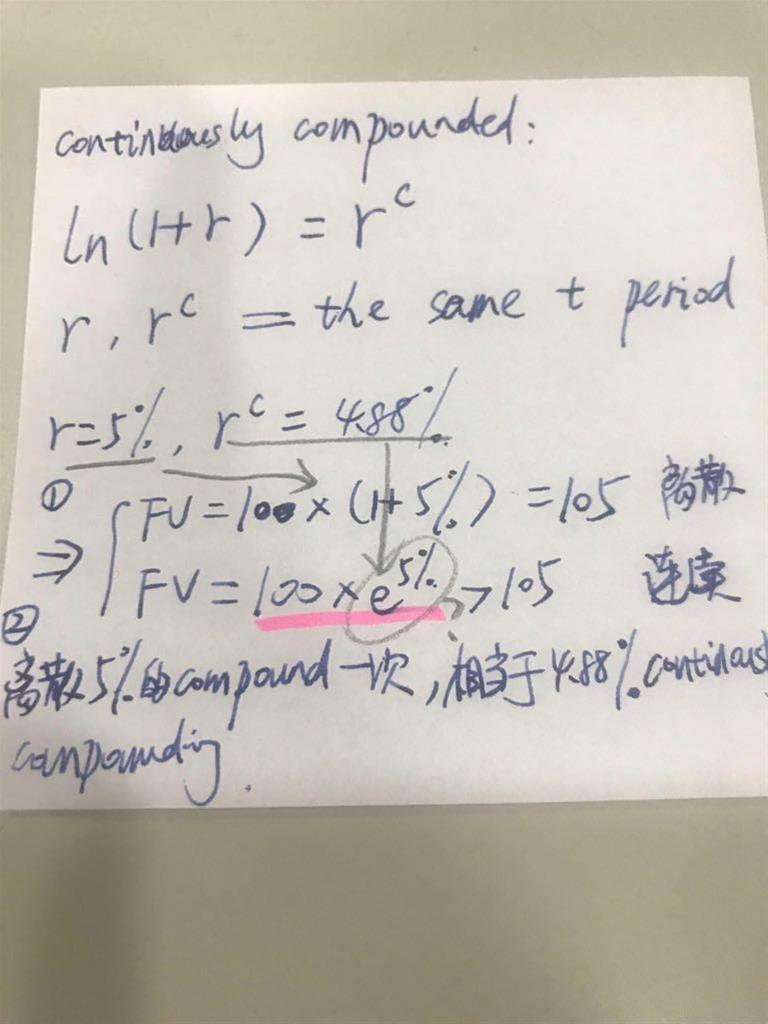 continuously compounded:
ln (1+r) = r^c
r, r^c = the same t period
r=5%, r^c = 4.88%
① FV = 100 × (1+5%) = 105 离散
⇒ FV = 100 × e^5% > 105 连续
?
② 离散5%的compound一次,相当于4.88% continous
compounding.